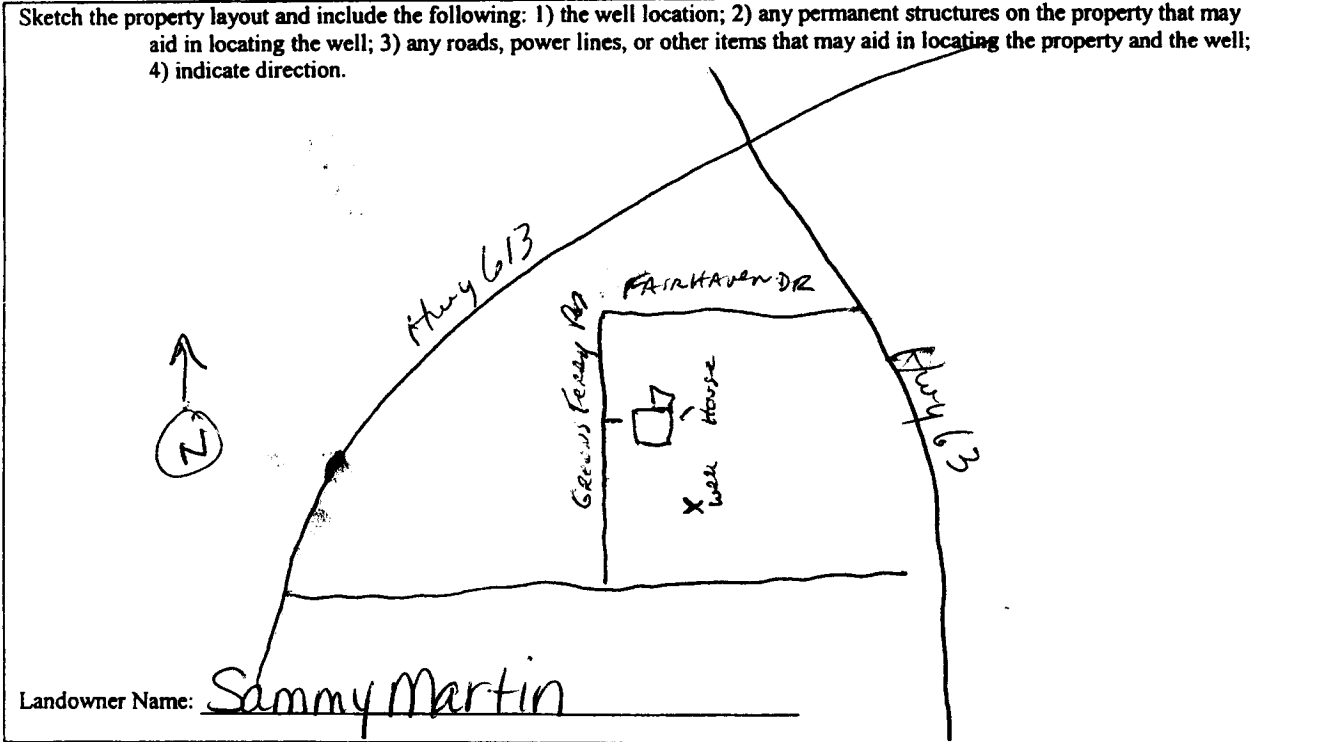 Sketch the property layout and include the following: 1) the well location; 2) any permanent structures on the property that may
aid in locating the well; 3) any roads, power lines, or other items that may aid in locating the property and the well;
4) indicate direction.
Hwy 613
FAIRHAVEN DR
Greens Ferry Rd
House
Hwy 63
N
X
Well
Landowner Name: Sammy Martin